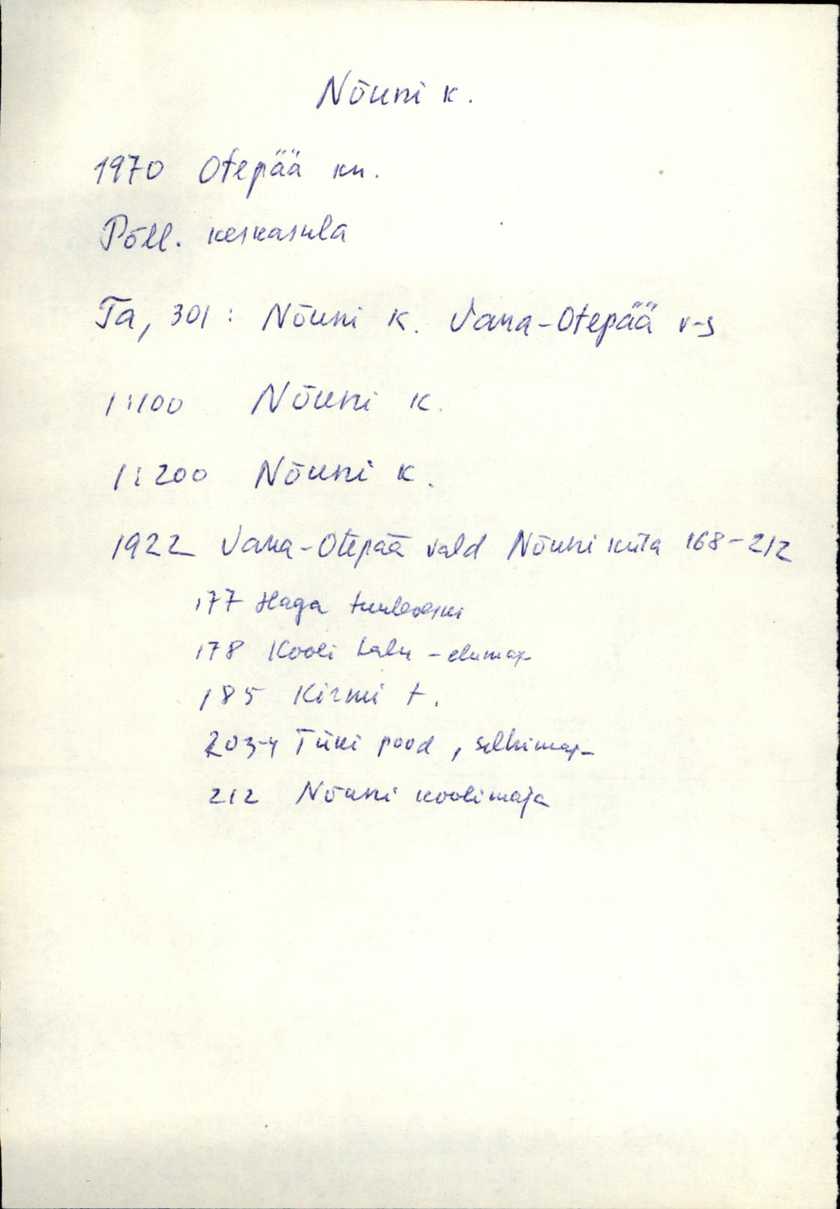 Nõuni k.
1970 Otepää kn.
Põll. keskasula
Ta, 301: Nõuni k. Vana-Otepää v-s
1:100 Nõuni k.
1:200 Nõuni k.
1922 Vana-Otepää vald Nõuni küla 168-212
177 Haga tuuleveski
178 Kooli talu - elumaja
185 Kirmi t.
203-4 Tiiki pood, seltsimaja
212 Nõuni koolimaja